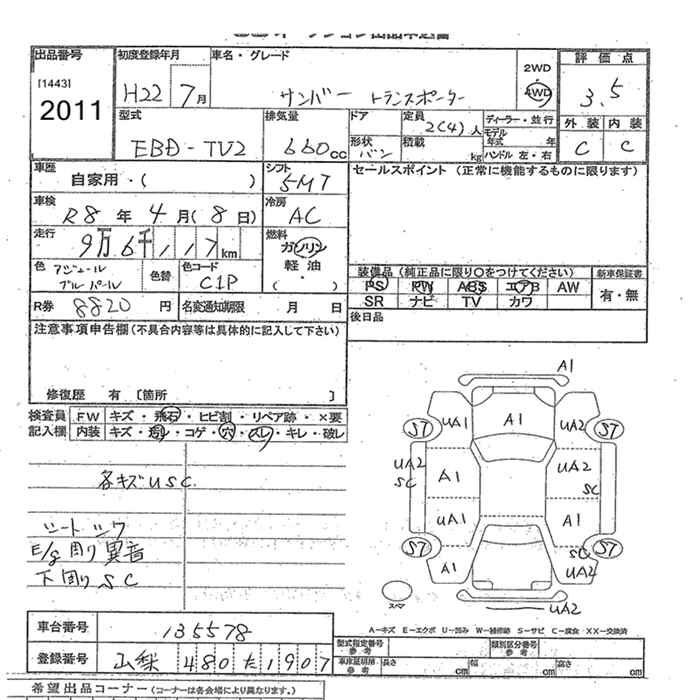 出品番号
[1443]
2011
初度登録年月
H22 7月
車名・グレード
サンバー トランスポーター
2WD
4WD
評価点
3.5
外装 内装
C C
型式
EBD-TV2
排気量
660cc
ドア
形状
バン
定員
2(4)人
積載
kg
ディーラー・並行
モデル年式 年
ハンドル 左・右
車歴
自家用・( )
シフト
5MT
セールスポイント(正常に機能するものに限ります)
車検
R8年4月(8日)
冷房
AC
走行
9万6千117km
燃料
ガソリン
軽油
( ・ )
色
アジュールブルパール
色替
色コード
C1P
R券 8820円
名変通知期限 月 日
装備品(純正品に限り○をつけてください)
PS PW ABS エアB AW
SR ナビ TV カワ
新車保証書
有・無
後日品
注意事項申告欄(不具合内容等は具体的に記入して下さい)
修復歴 有〔箇所 〕
検査員 FW キズ・飛石・ヒビ割・リペア跡・×要
記入欄 内装 キズ・・コゲ・穴・スレ・キレ・破レ
各キズUSC
シートシワ
E/g周り異音
下周りSC
A1
ST UA1 A1 UA2 ST
UA2 SC A1 UA2 SC
UA1 A1
ST A1 SC UA2 ST
スペア
UA2
A−キズ E−エクボ U−凹み W−補修跡 S−サビ C−腐食 XX−交換済
車台番号 135578
登録番号 山梨 480 た 1907
型式指定番号 参考
類別区分番号 参考
車庫証明用 参考 長さ cm 幅 cm 高さ cm
希望出品コーナー(コーナーは各会場により異なります。)